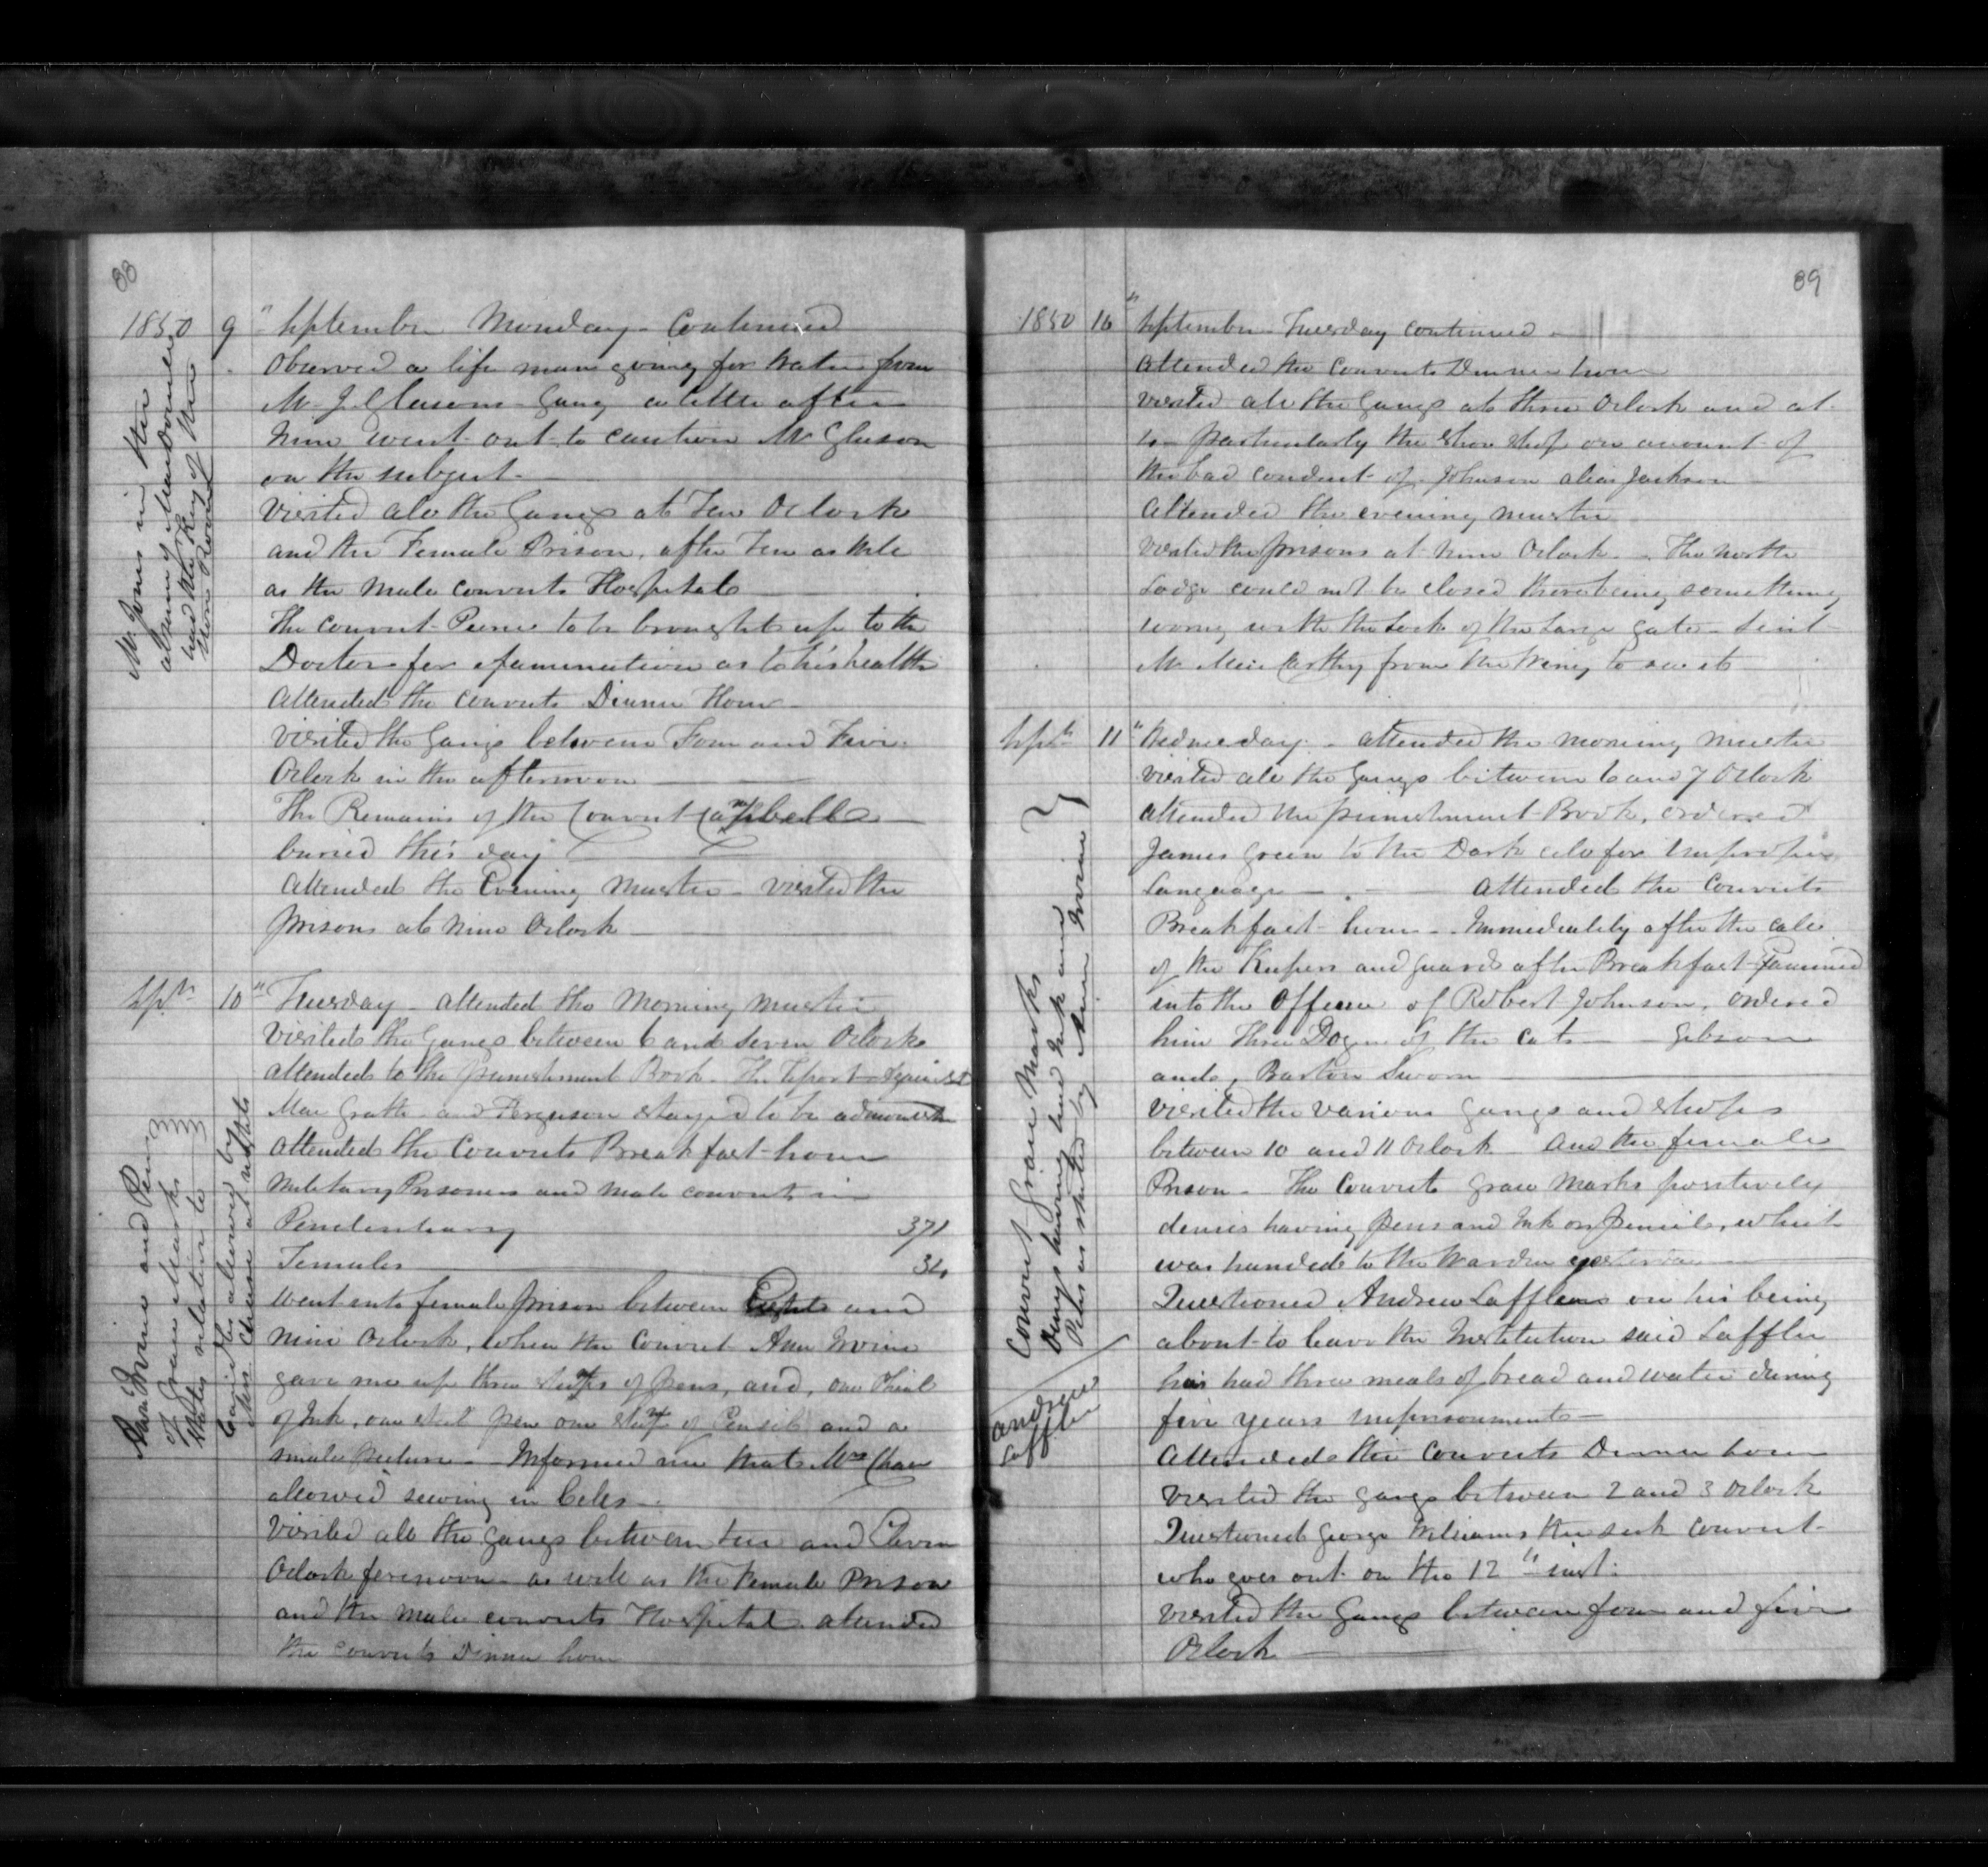 88
1850 9 " September Monday - Continued
Observed a life man going for water from
Mr J. Gleasons Gang a little after
nine went out to caution Mr Gleason
on the subject -
Visited all the Gangs at Ten Oclock
and the Female Prison, after Ten as well
as the Male convicts Hospital
The convict Pierre to be brought up to the
Doctor for examination as to his health
Attended the convicts Dinner Hour
Visited the Gangs between Four and Five
Oclock in the afternoon
The Remains of the Convict Campbell
buried this day
Attended the Evening Muster - visited the
prisons at nine Oclock
Mr Jones in the
had the Key of the
Store Room
Sepr 10 " Tuesday - attended the Morning Muster
Visited the Gangs between 6 and Seven Oclock
attended to the punishment Book - The Report against
Mac Grath - and Ferguson stayed to be
attended the Convicts Breakfast hour
Military Prisoners and male convicts in
Penitentiary 371
Females 34
Went into female prison between Eight and
nine Oclock, when the Convict Ann Irvine
gave me up three of pens, and, one Phial
of Ink, one steel pen one of Pencil and a
small picture - Informed me that Mrs Chase
allowed sewing in Cells -
Visited all the gangs between ten and Eleven
Oclock forenoon as well as the Female Prison
and the male convicts Hospital attended
the convicts Dinner hour
Ann Irvine and Pen
of Grace Marks
States relative to
Candles allowed by
Mrs Chase at nights
89
1850 10 " September - Tuesday continued -
Attended the Convicts Dinner hour
visited all the Gangs at three Oclock and at
to particularly the Shoe Shop on account of
the bad conduct of Johnson alias Jackson
Attended the evening muster
Visited the prisons at nine Oclock - The North
Lodge could not be closed there being something
wrong with the Lock of the Large gate - Sent
Mr Mac Carthy from the Wing to see it
Sepr 11 " Wednesday - attended the morning muster
visited all the Gangs between 6 and 7 Oclock
attended the punishment Book, ordered
James Green to the Dark cell for Improper
Language - attended the Convicts
Breakfast hour - Immediately after the call
of the Keepers and guards after Breakfast Examined
into the Offence of Robert Johnson, ordered
him Three Dozen of the cats - Gibson
and, Barton Sworn
Visited the various gangs and shops
between 10 and 11 Oclock and the female
Prison - The Convict Grace Marks positively
denies having pens and Ink or pencil, which
was handed to the Warden yesterday
Questioned Andrew Laffler on his being
about to leave the Institution said Laffler
has had three meals of bread and water during
five years imprisonment -
Attended the Convicts Dinner hour
Visited the gangs between 2 and 3 Oclock
Questioned George Williams the sick convict
who goes out on the 12th inst.
Visited the Gangs between four and five
Oclock
Convict Grace Marks
Denys having had Ink and
Pens as stated by Ann Irvine
Andrew
Laffler